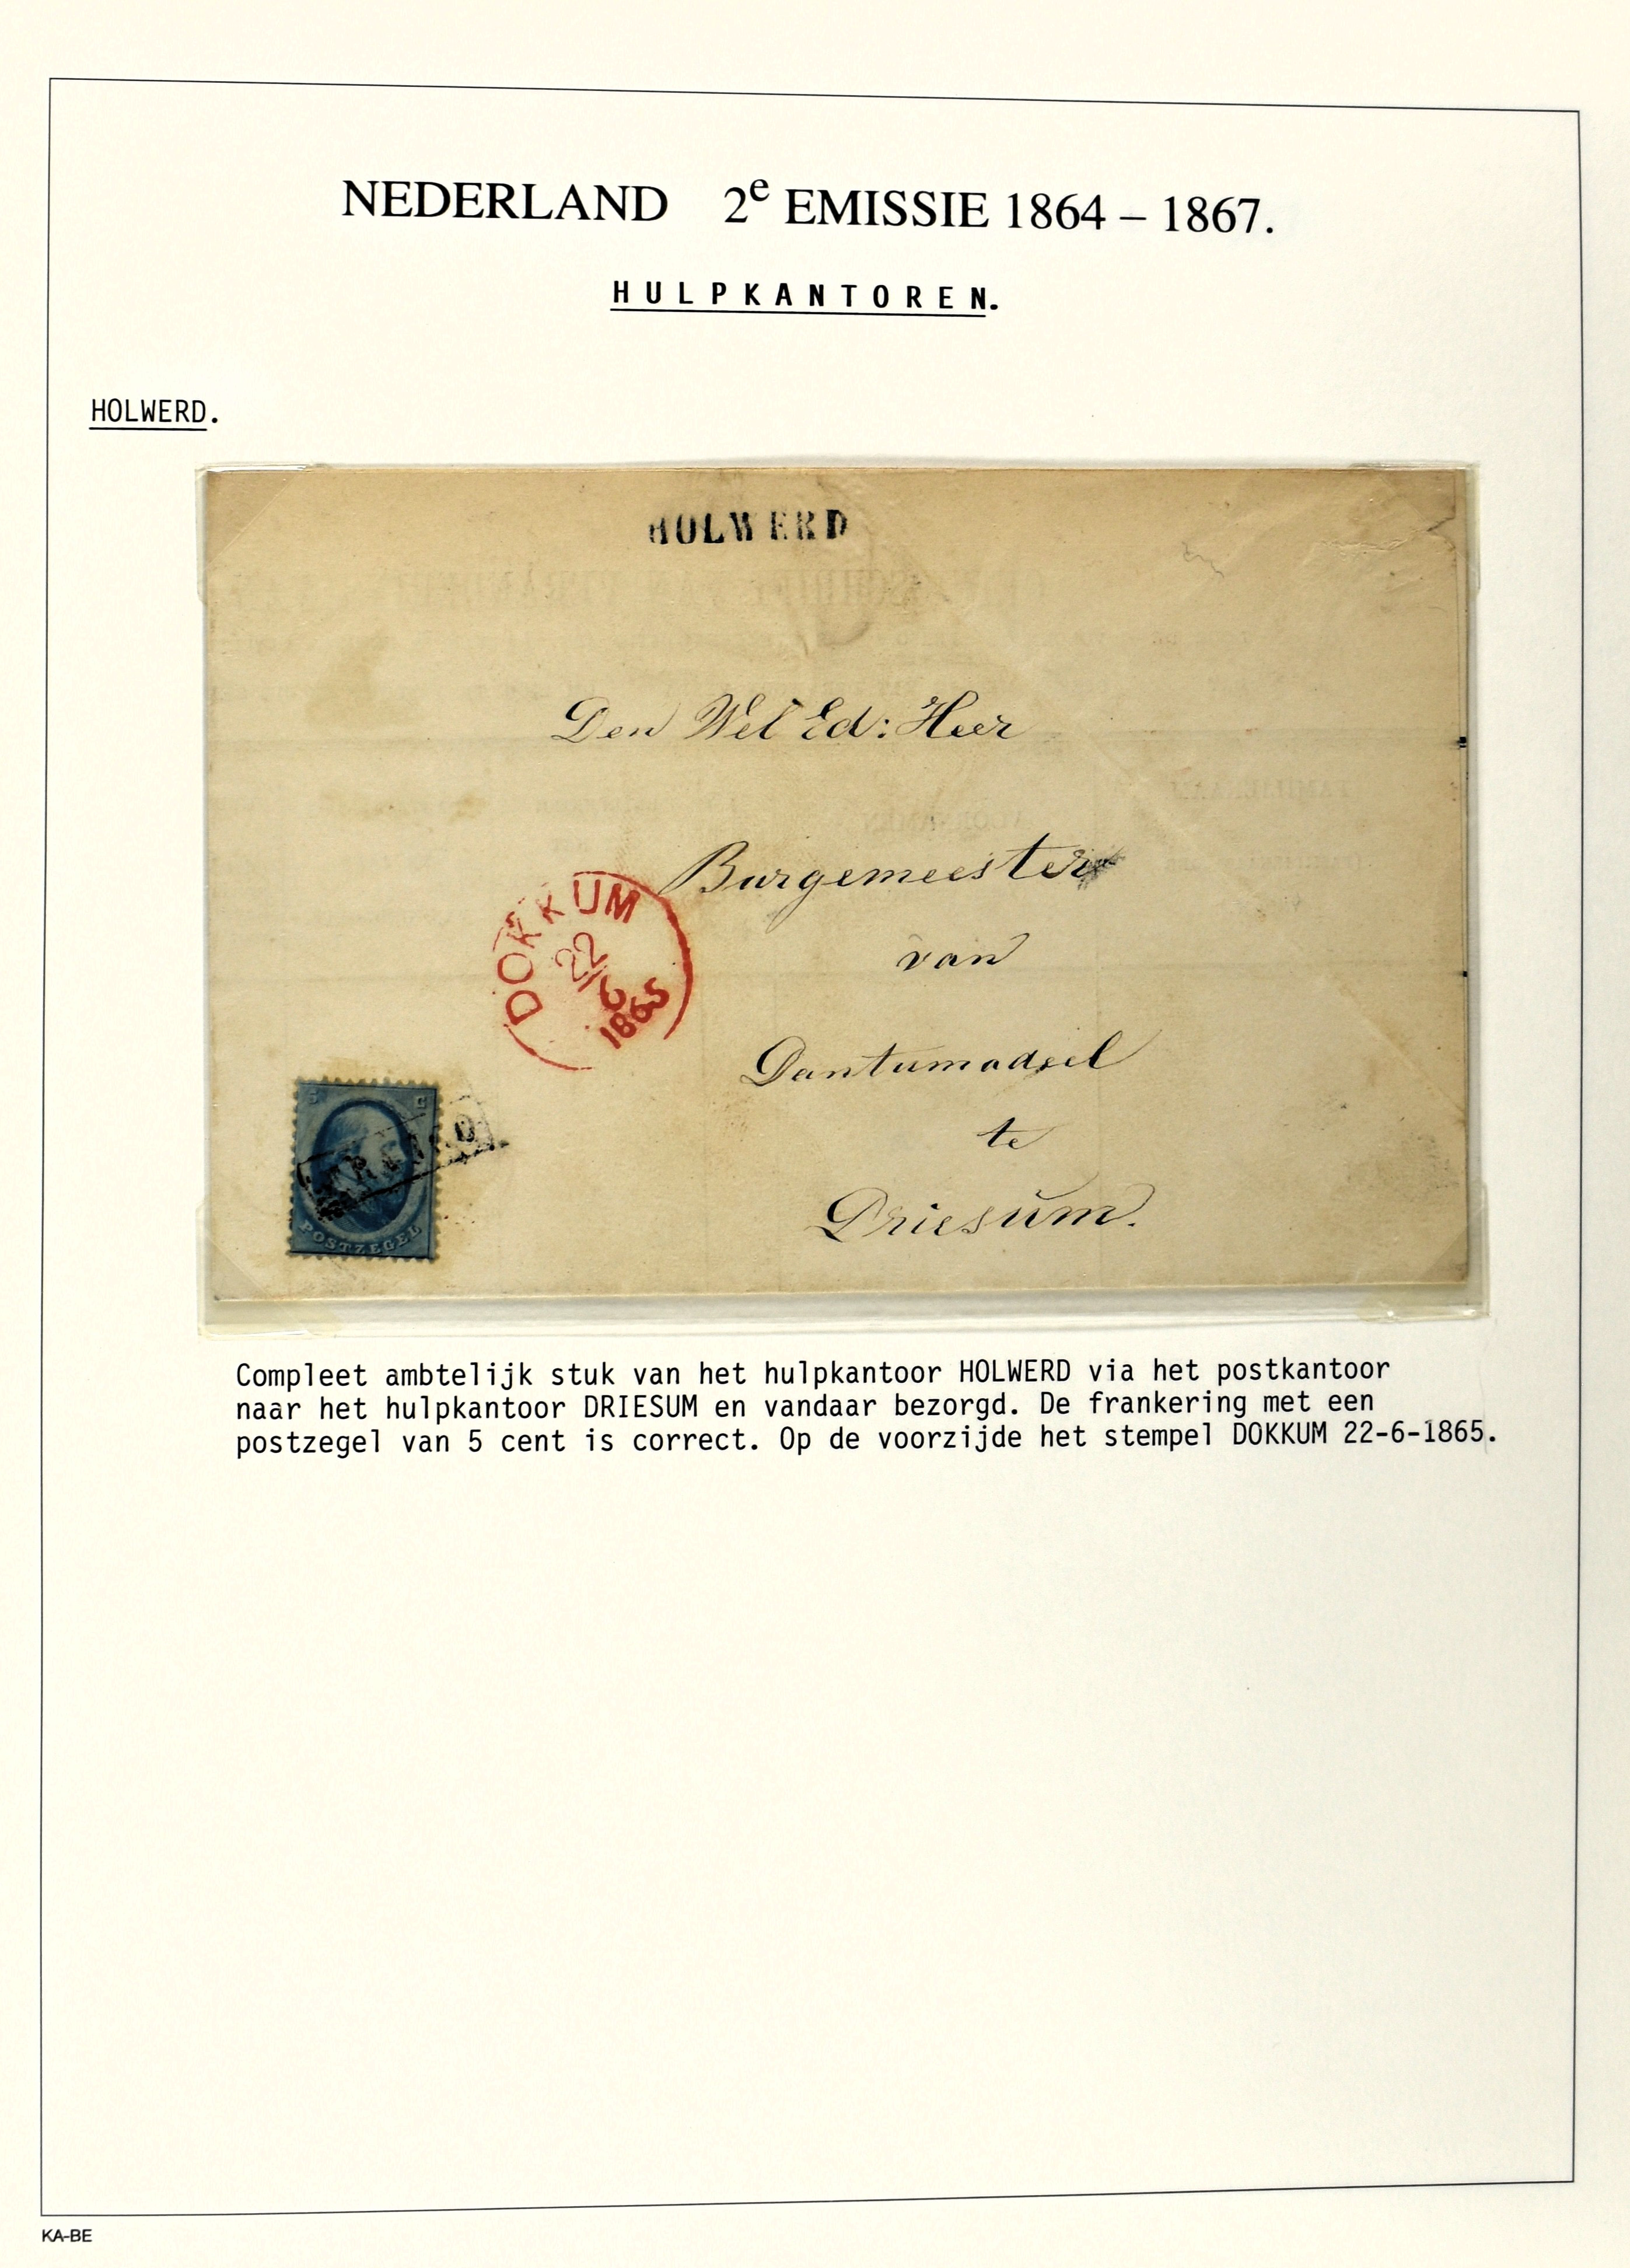 NEDERLAND 2e EMISSIE 1864 – 1867.
HULPKANTOREN.
HOLWERD.
HOLWERD
Den Wel Ed: Heer
Burgemeester
van
Dantumadeel
te
Driesum.
DOKKUM
22
6
1865
5 C
FRANCO
POSTZEGEL
Compleet ambtelijk stuk van het hulpkantoor HOLWERD via het postkantoor
naar het hulpkantoor DRIESUM en vandaar bezorgd. De frankering met een
postzegel van 5 cent is correct. Op de voorzijde het stempel DOKKUM 22-6-1865.
KA-BE